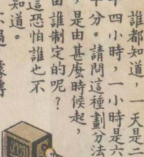 誰都知道，一天是二
十四小時，一小時是
十分。請問這種劃分法
，是由甚麼時候起，
由誰制定的呢？
這恐怕誰也不
知道。